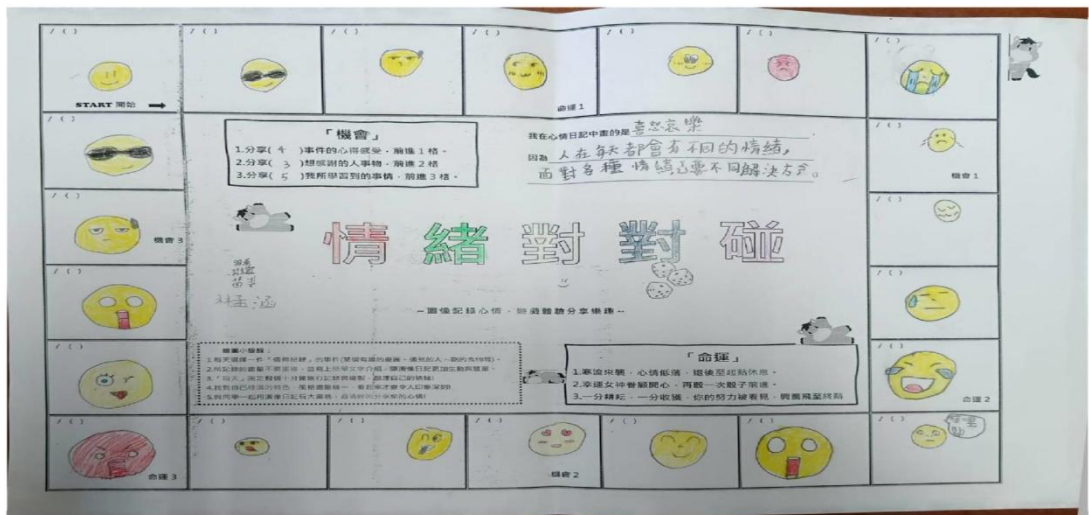 / ( )
/ ( )
/ ( )
/ ( )
/ ( )
/ ( )
/ ( )
START 開始
命運1
「機會」
1.分享( 4 )事件的心得感受,前進1格。
2.分享( 3 )想感謝的人事物,前進2格
3.分享( 5 )我所學習到的事情,前進3格。
我在心情日記中畫的是 喜怒哀樂
因為 人在每天都會有不同的情緒,
面對各種情緒 要不同解決方式。
/ ( )
/ ( )
機會1
/ ( )
/ ( )
機會3
情緒對對碰
/ ( )
/ ( )
~圖像記錄心情,遊戲體驗分享樂趣~
/ ( )
/ ( )
命運2
「命運」
1.寒流來襲,心情低落,退後至起點休息。
2.幸運女神眷顧開心,再骰一次骰子前進。
3.一分耕耘,一分收獲,你的努力被看見,興奮飛至終點
/ ( )
/ ( )
/ ( )
/ ( )
/ ( )
/ ( )
命運3
機會2